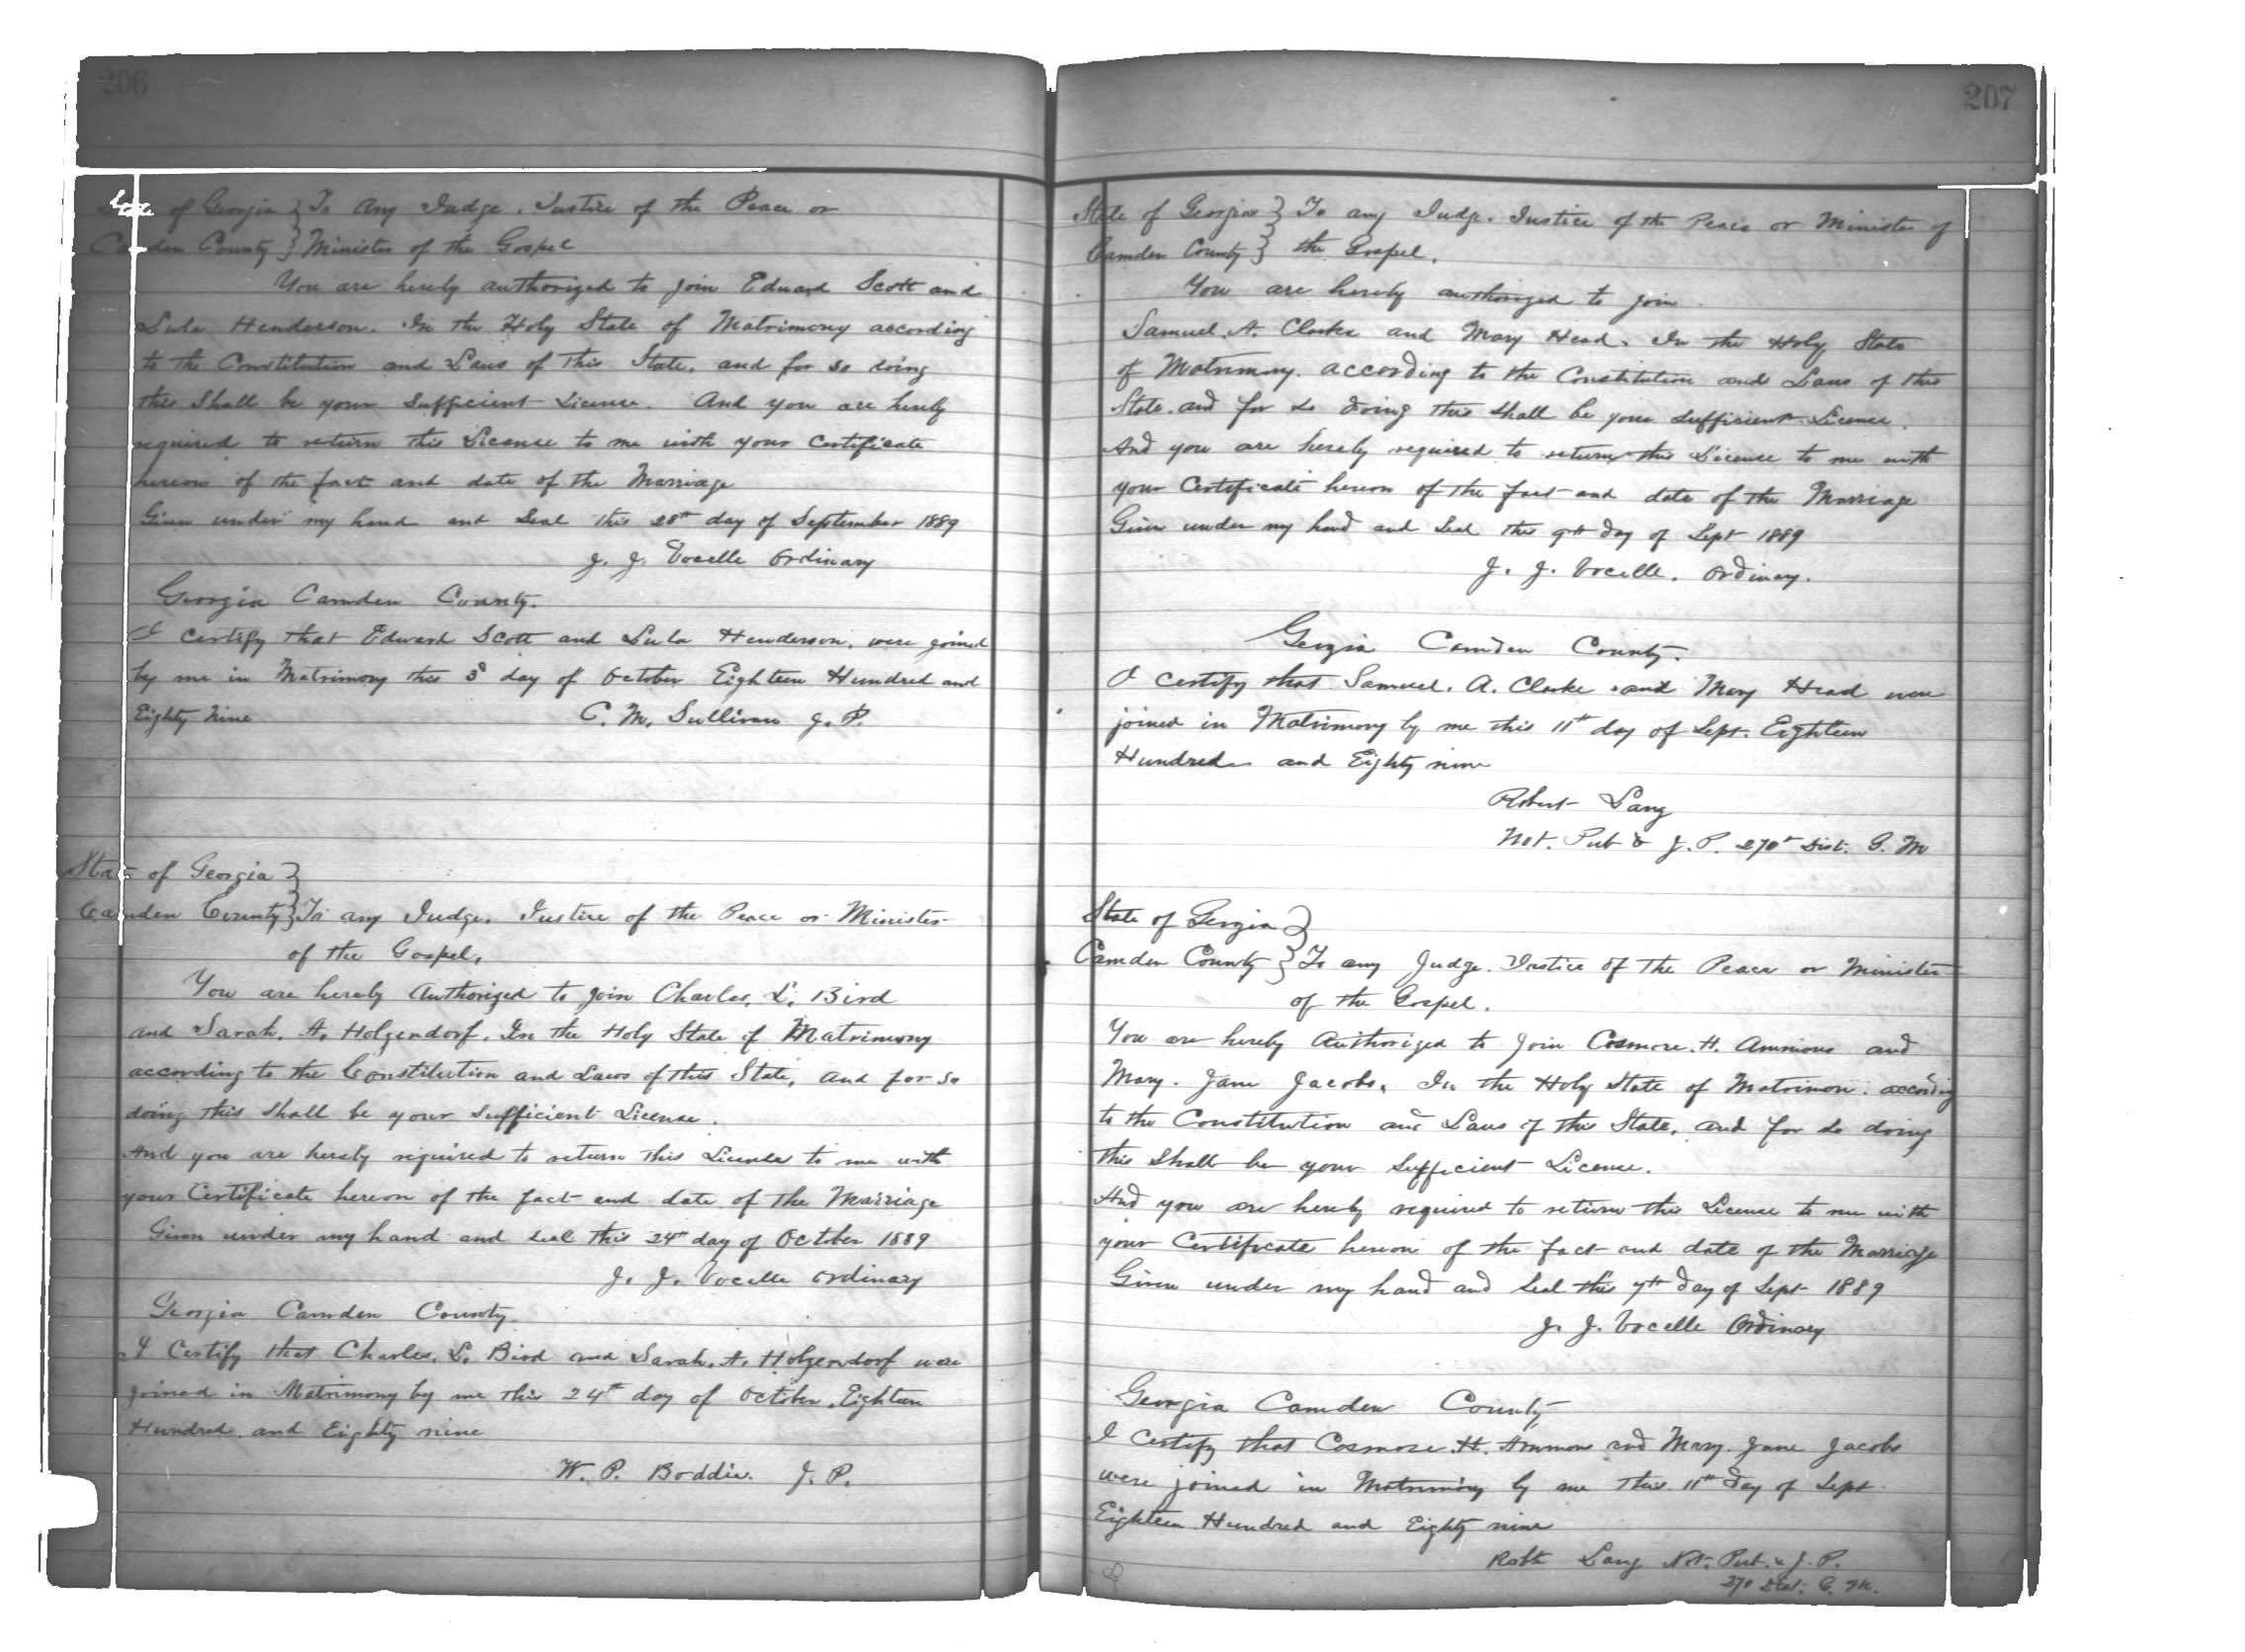 206
State of Georgia } To Any Judge. Justice of the Peace or
Camden County } Minister of the Gospel
You are hereby authorized to join Edward Scott and
Lula Henderson. In the Holy State of Matrimony according
to the Constitution and Laws of this State. and for so doing
this Shall be your Sufficient License. And you are hereby
required to return this License to me with your Certificate
hereon of the fact and date of the Marriage
Given under my hand and Seal this 28th day of September 1889
J. J. Vocelle Ordinary
Georgia Camden County.
I certify that Edward Scott and Lula Henderson. were joined
by me in Matrimony this 3d day of October Eighteen Hundred and
Eighty Nine C. M. Sullivan J. P.
State of Georgia }
Camden County } To any Judge. Justice of the Peace or Minister
of the Gospel.
You are hereby Authorized to join Charles. L. Bird
and Sarah. A. Holzendorf. In the Holy State of Matrimony
according to the Constitution and Laws of this State, and for so
doing this shall be your Sufficient License.
And you are hereby required to return this License to me with
your Certificate hereon of the fact and date of the Marriage
Given under my hand and seal this 24th day of October 1889
J. J. Vocelle Ordinary
Georgia Camden County.
I Certify that Charles. L. Bird and Sarah. A. Holzendorf were
joined in Matrimony by me this 24th day of October. Eighteen
Hundred. and Eighty nine
W. P. Boddie. J. P.
207
State of Georgia } To any Judge. Justice of the Peace or Minister of
Camden County } the Gospel.
You are hereby authorized to join
Samuel. A. Clarke and Mary Head. In the Holy State
of Matrimony. according to the Constitution and Laws of this
State. and for so doing this shall be your sufficient License.
And you are hereby required to return this License to me with
your Certificate hereon of the fact and date of the Marriage
Given under my hand and Seal this 9th day of Sept 1889
J. J. Vocelle. Ordinary.
Georgia Camden County.
I certify that Samuel. A. Clarke and Mary Head were
joined in Matrimony by me this 11th day of Sept. Eighteen
Hundred and Eighty nine
Robert Lang
Not. Pub & J. P. 270th Dist. G. M
State of Georgia }
Camden County } To any Judge. Justice of the Peace or Minister
of the Gospel.
You are hereby Authorized to join Cosmore. H. Ammons and
Mary. Jane Jacobs. In the Holy State of Matrimon. according
to the Constitution and Laws of this State. and for so doing
this Shall be your Sufficient License.
And you are hereby required to return this License to me with
your Certificate hereon of the fact and date of the Marriage
Given under my hand and Seal this 7th day of Sept 1889
J. J. Vocelle Ordinary
Georgia Camden County
I Certify that Cosmore. H. Ammons and Mary. Jane Jacobs
were joined in Matrimony by me this 11th day of Sept.
Eighteen Hundred and Eighty nine
Robt Lang Not. Pub. & J. P.
270 Dist. G. M.